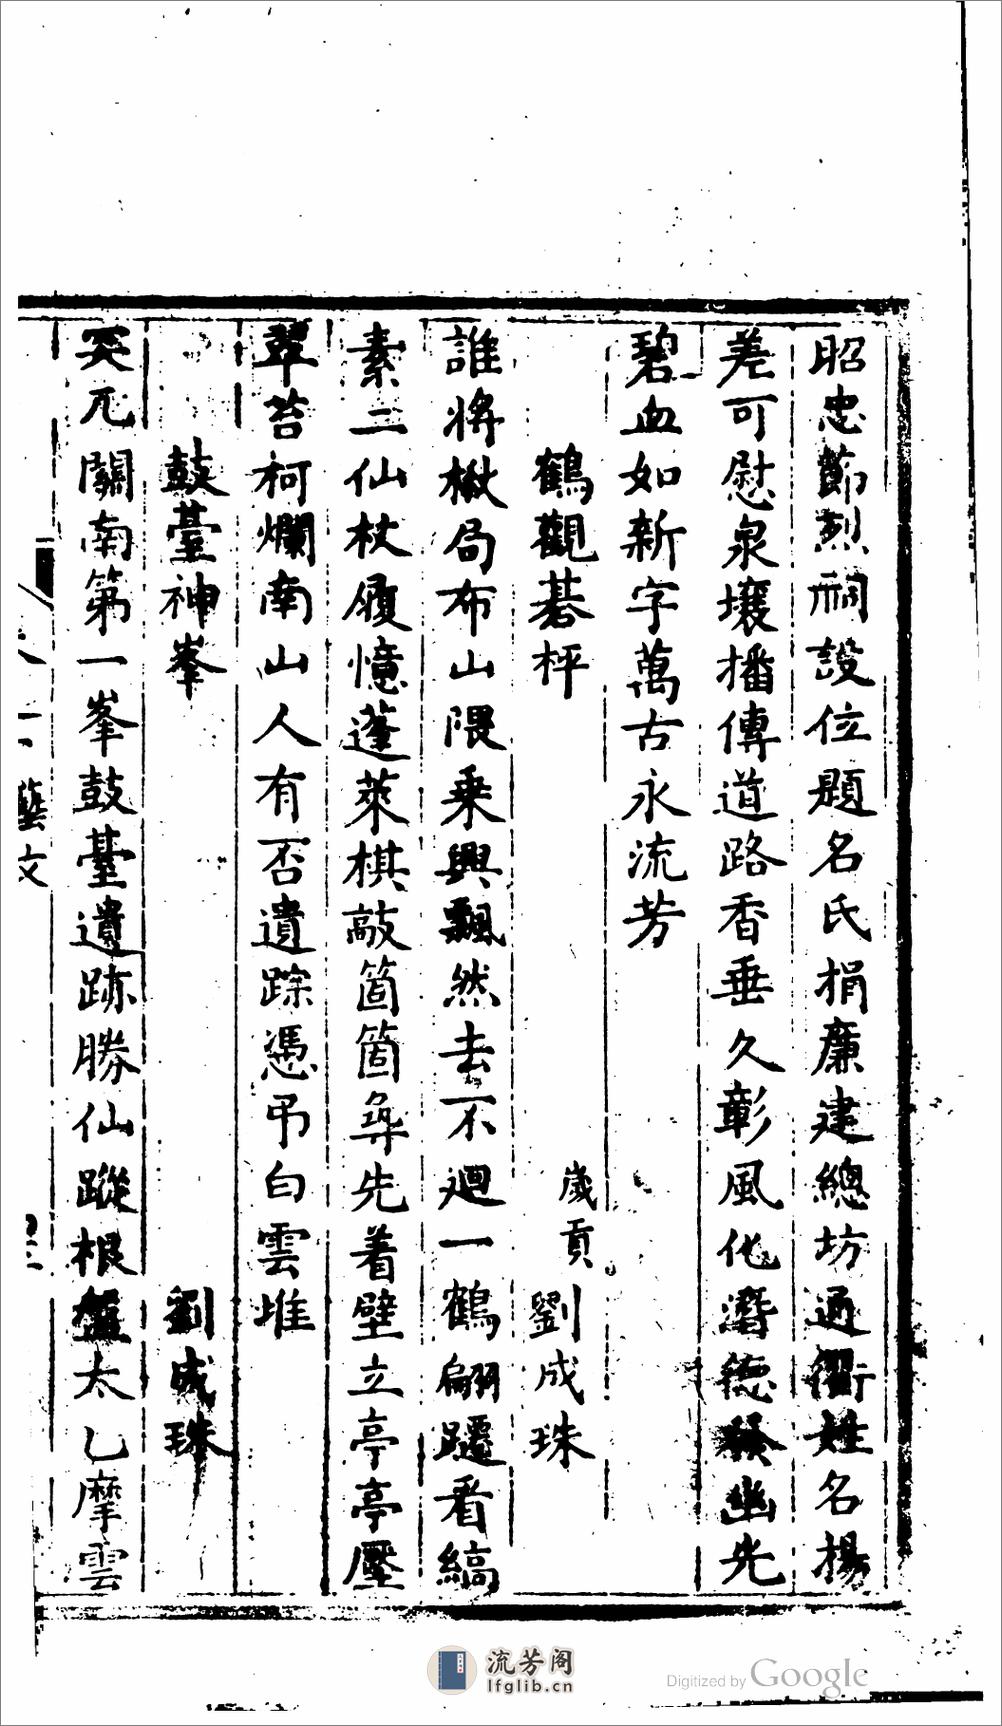 昭忠節烈祠設位題名氏捐廉建總坊通衢姓名揚
差可慰泉壤播傳道路香垂久彰風化潛德發幽光
碧血如新字萬古永流芳
鶴觀碁枰
歲貢劉成珠
誰將楸局布山隈乘興飄然去不廻一鶴翩躚看縞
素二仙杖履憶蓬萊棋敲箇箇爭先着壁立亭亭壓
翠苔柯爛南山人有否遺踪憑弔白雲堆
鼓臺神峯
劉成珠
突兀關南第一峯鼓臺遺跡勝仙蹤根盤太乙摩雲
藝文
流芳阁
lfglib.cn
Digitized by Google